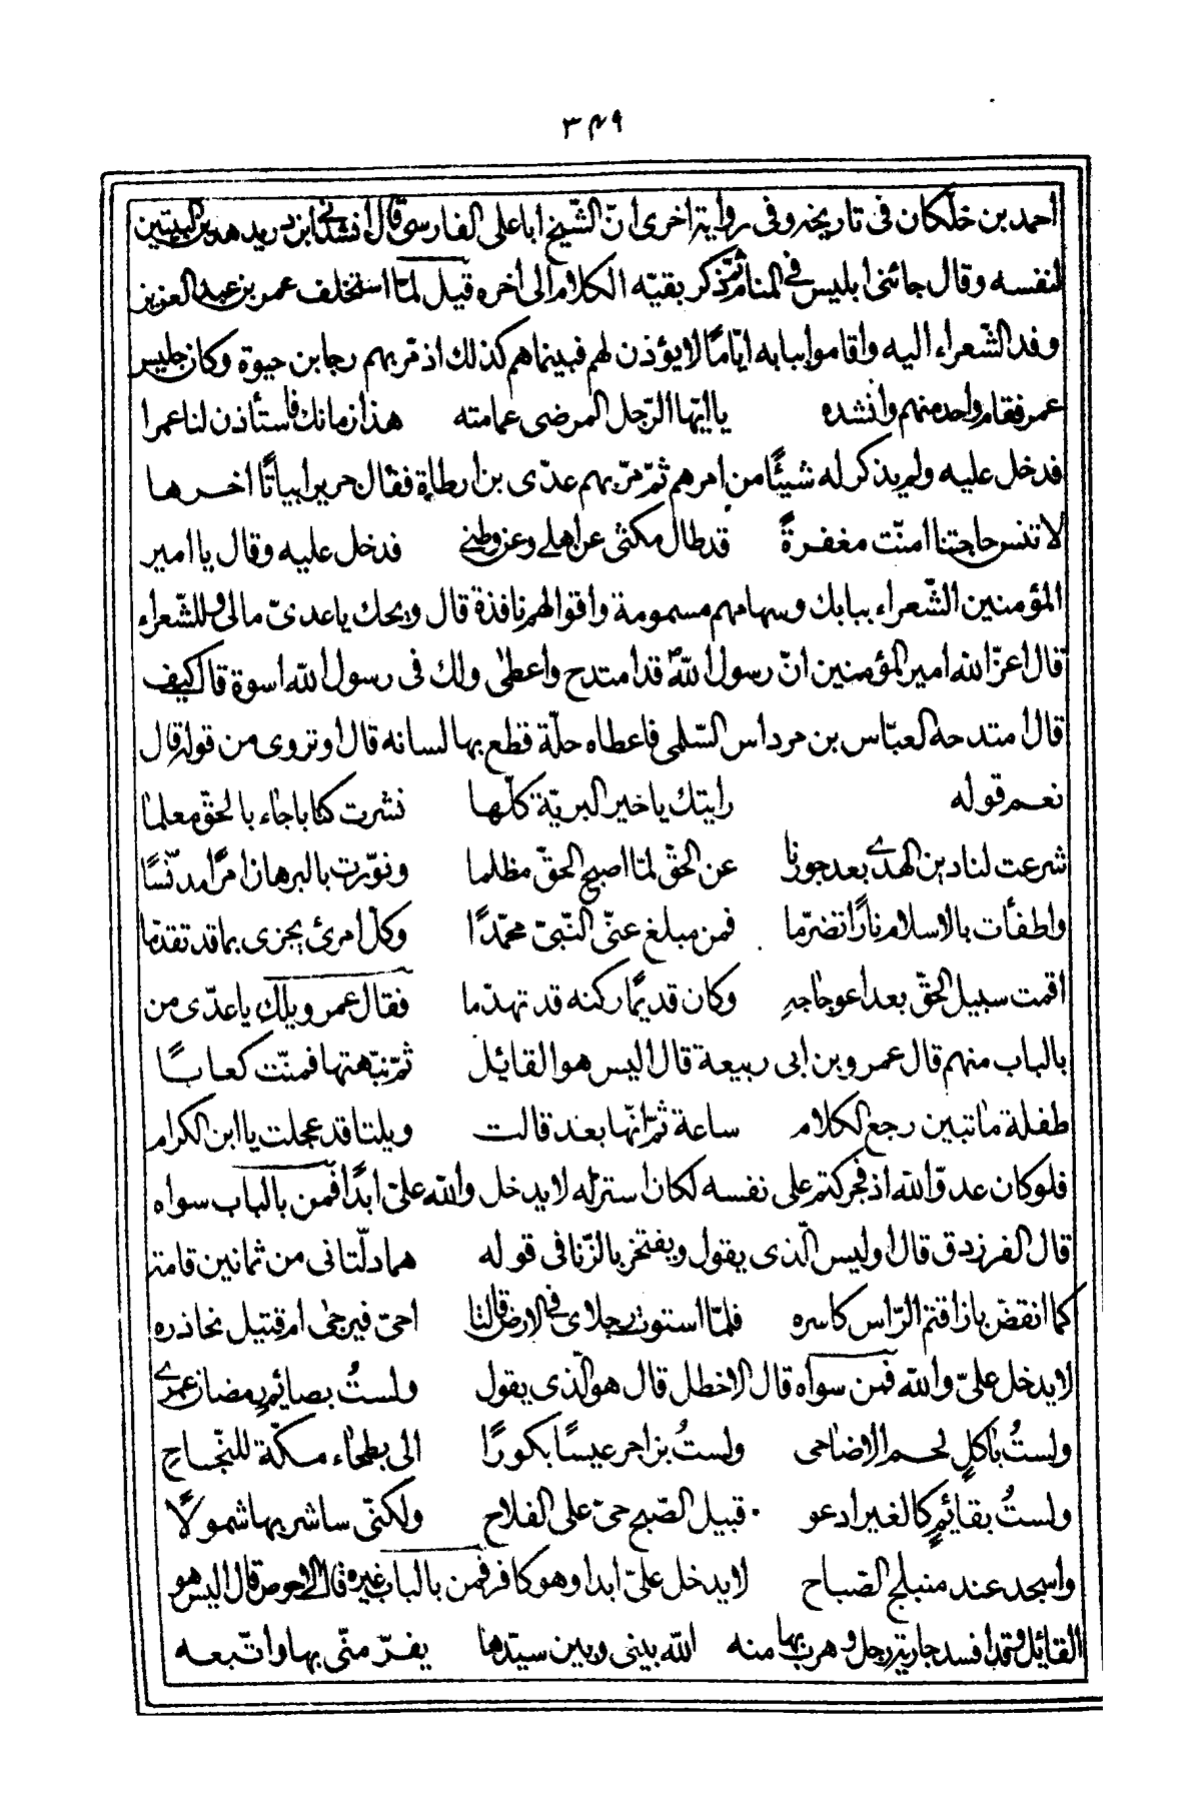 ٣٤٩
احمد بن خلكان فى تاريخه و فى رواية اخرى انّ الشّيخ ابا على الفارسى قال انشدنى ابن دريد هذين البيتين
لنفسه وقال جائنى ابليس فى المنام ثمّ ذكر بقيّه الكلام الى اخره قيل لمّا استخلف عمر بن عبد العزيز
وفد الشّعراء اليه واقاموا ببابه ايّامًا لا يؤذن لهم فبينما هم كذلك اذ مّر بهم رجا بن حيوة وكان جليس
عمر فقام واحد منهم وانشده يا ايّها الرّجل المرضى عمامته هذا زمانك فاستأذن لنا عمرا
فدخل عليه ولم يذكر له شيئًا من امرهم ثمّ مّر بهم عدّى بن ارطاة فقال جرير ابياتًا اخرها
لا تنس حاجتنا امنّت مغفرةً قد طال مكثى عن اهلى وعن وطنى فدخل عليه وقال يا امير
المؤمنين الشّعراء ببابك وسهامهم مسمومة واقوالهم نافذة قال ويحك يا عدىّ مالى وللشّعراء
قال اعزّ الله امير المؤمنين انّ رسول اللّه قد امتدح واعطى ولك فى رسول اللّه اسوة قال كيف
قال امتدحه العبّاس بن مرداس السّلمى فاعطاه حلّة قطع بها لسانه قال او تروى من قوله قال
نعم قوله رايتك يا خير البريّة كلّها نشرت كتابا جاء بالحقّ معلما
شرعت لنا دين الهدى بعد جورنا عن الحقّ لمّا اصبح الحقّ مظلما ونوّرت بالبرهان امرًا مدنّسًا
واطفأت بالاسلام نارًا تضرّما فمن مبلغ عنّى النّبىّ محمّدًا وكلّ امرئ يجزى بما قد تقدّما
اقمت سبيل الحقّ بعد اعوجاجه وكان قديمًا ركنه قد تهدّما فقال عمر ويلك يا عدّى من
بالباب منهم قال عمرو بن ابى ربيعة قال اليس هو القائل ثمّ نبّهتها فمنّت كعابًا
طفلة ما تبين رجع الكلام ساعة ثمّ انّها بعد قالت ويلتا قد عجلت يا ابن الكرام
فلو كان عدوّ اللّه اذ فجر كتم على نفسه لكان استر له لا يدخل واللّه علىّ ابدًا فمن بالباب سواه
قال الفرزدق قال اوليس الّذى يقول ويفتخر بالزّنا فى قوله هما دلّتانى من ثمانين قامة
كما انقضّ باز اقتم الرّاس كاسره فلمّا استوت رجلاى فى الارض قالتا احىّ فيرجى ام قتيل نحاذره
لا يدخل علىّ واللّه فمن سواه قال الاخطل قال هو الّذى يقول ولستُ بصائم رمضان عمرى
ولستُ باكلٍ لحم الاضاحى ولستُ بزاجر عيسًا بكورًا الى بطحاء مكّة للنّجاح
ولستُ بقائمٍ كالغير ادعو قبيل الصّبح حىّ على الفلاح ولكنّى ساشربها شمولًا
واسجد عند منبلج الصّباح لا يدخل علىّ ابدا وهو كافر فمن بالباب غيره قال الاحوص قال اليس هو
القائل وقد افسد جارية رجل وهرب بها منه اللّه بينى وبين سيّدها يفرّ منّى بها واتّبعه